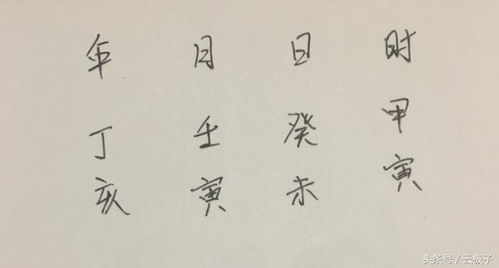 年 月 日 时
丁 壬 癸 甲
亥 寅 未 寅
头条号/云极子